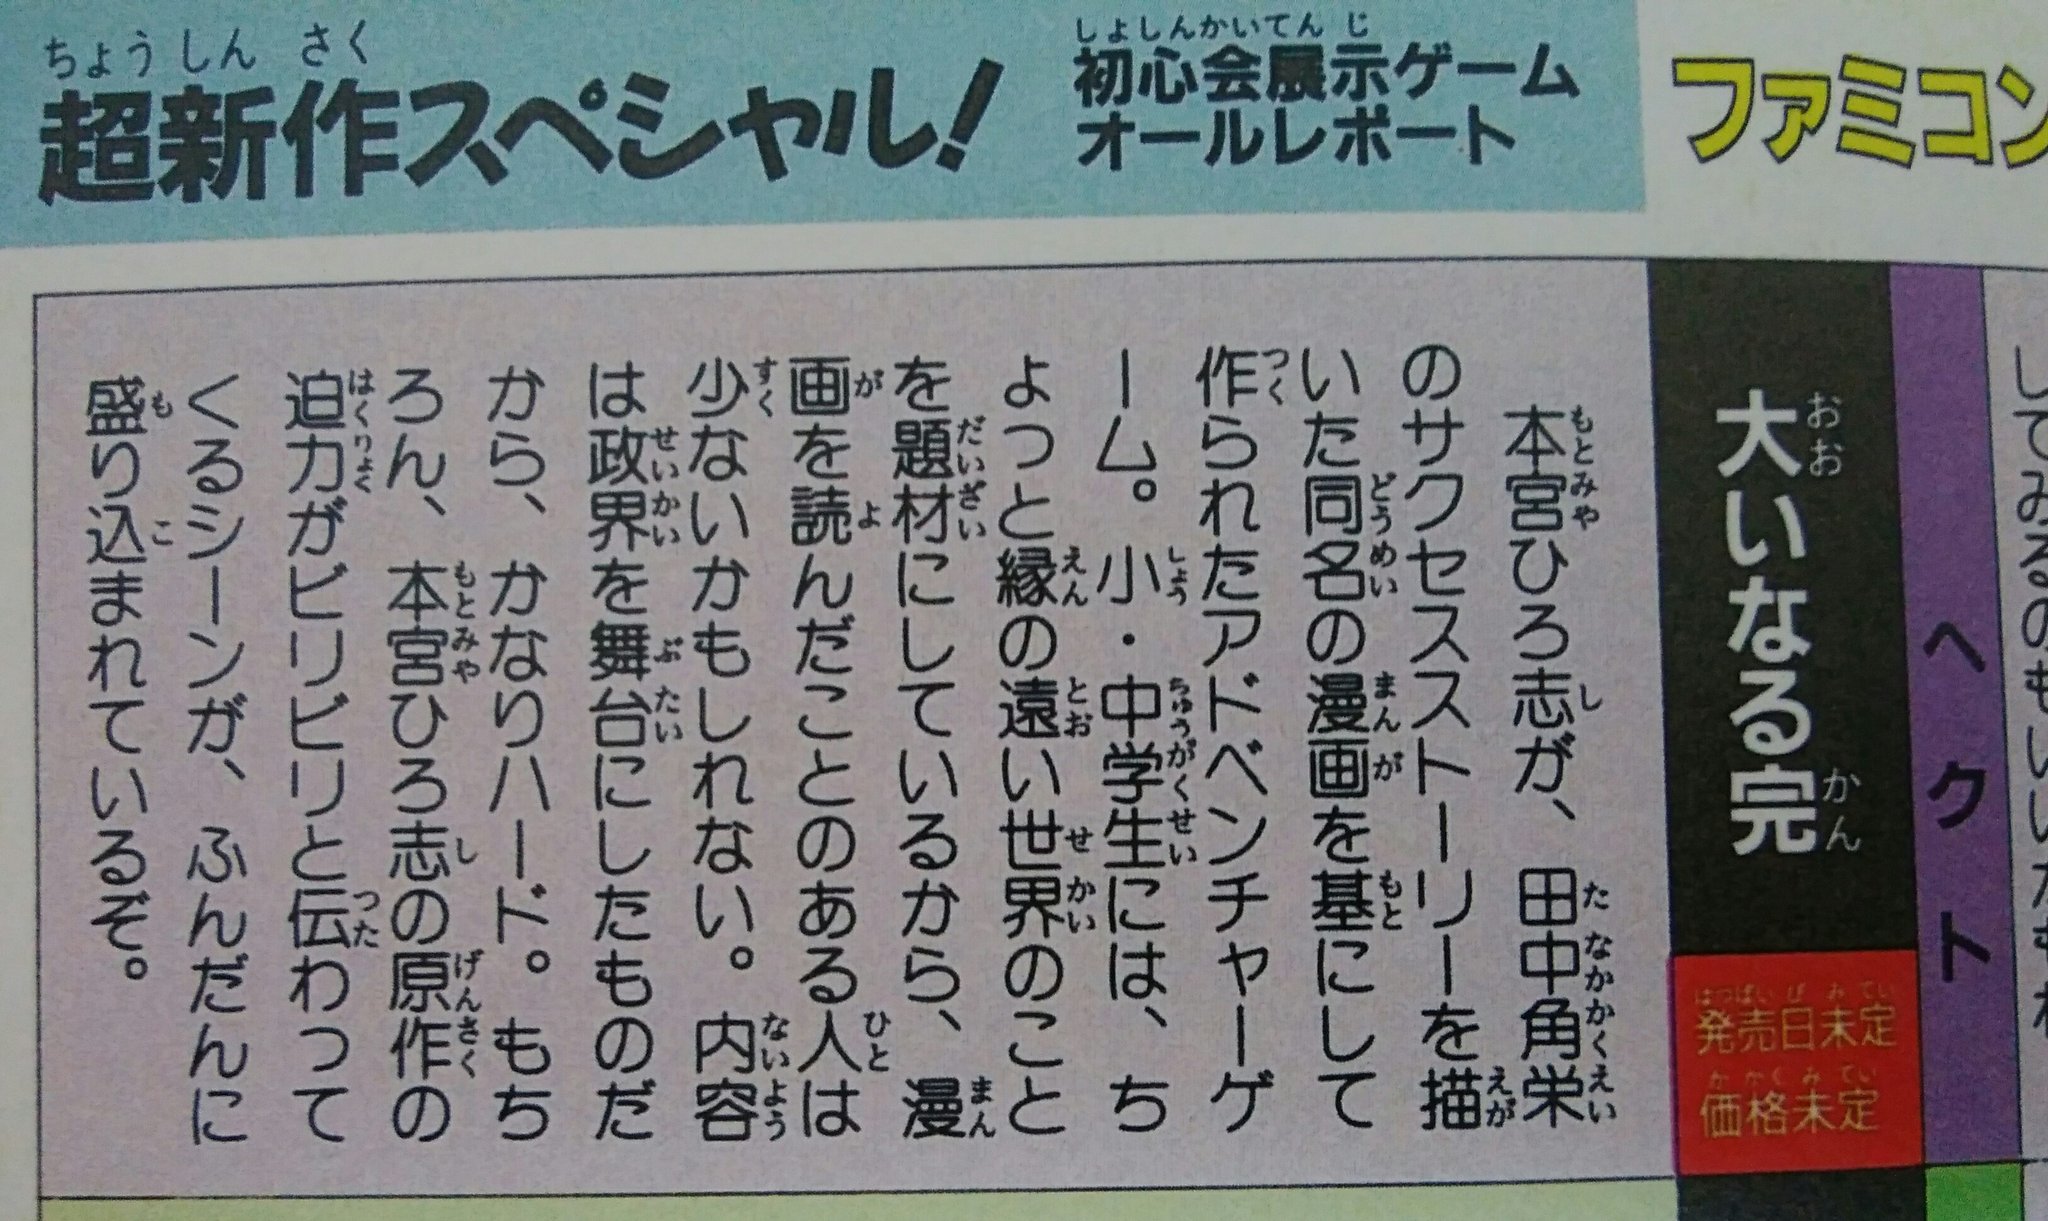 超新作スペシャル!
初心会展示ゲーム
オールレポート
ファミコン
ヘクト
大いなる完
発売日未定
価格未定
本宮ひろ志が、田中角栄
のサクセスストーリーを描
いた同名の漫画を基にして
作られたアドベンチャーゲ
ーム。小・中学生には、ち
ょっと縁の遠い世界のこと
を題材にしているから、漫
画を読んだことのある人は
少ないかもしれない。内容
は政界を舞台にしたものだ
から、かなりハード。もち
ろん、本宮ひろ志の原作の
迫力がビリビリと伝わって
くるシーンが、ふんだんに
盛り込まれているぞ。